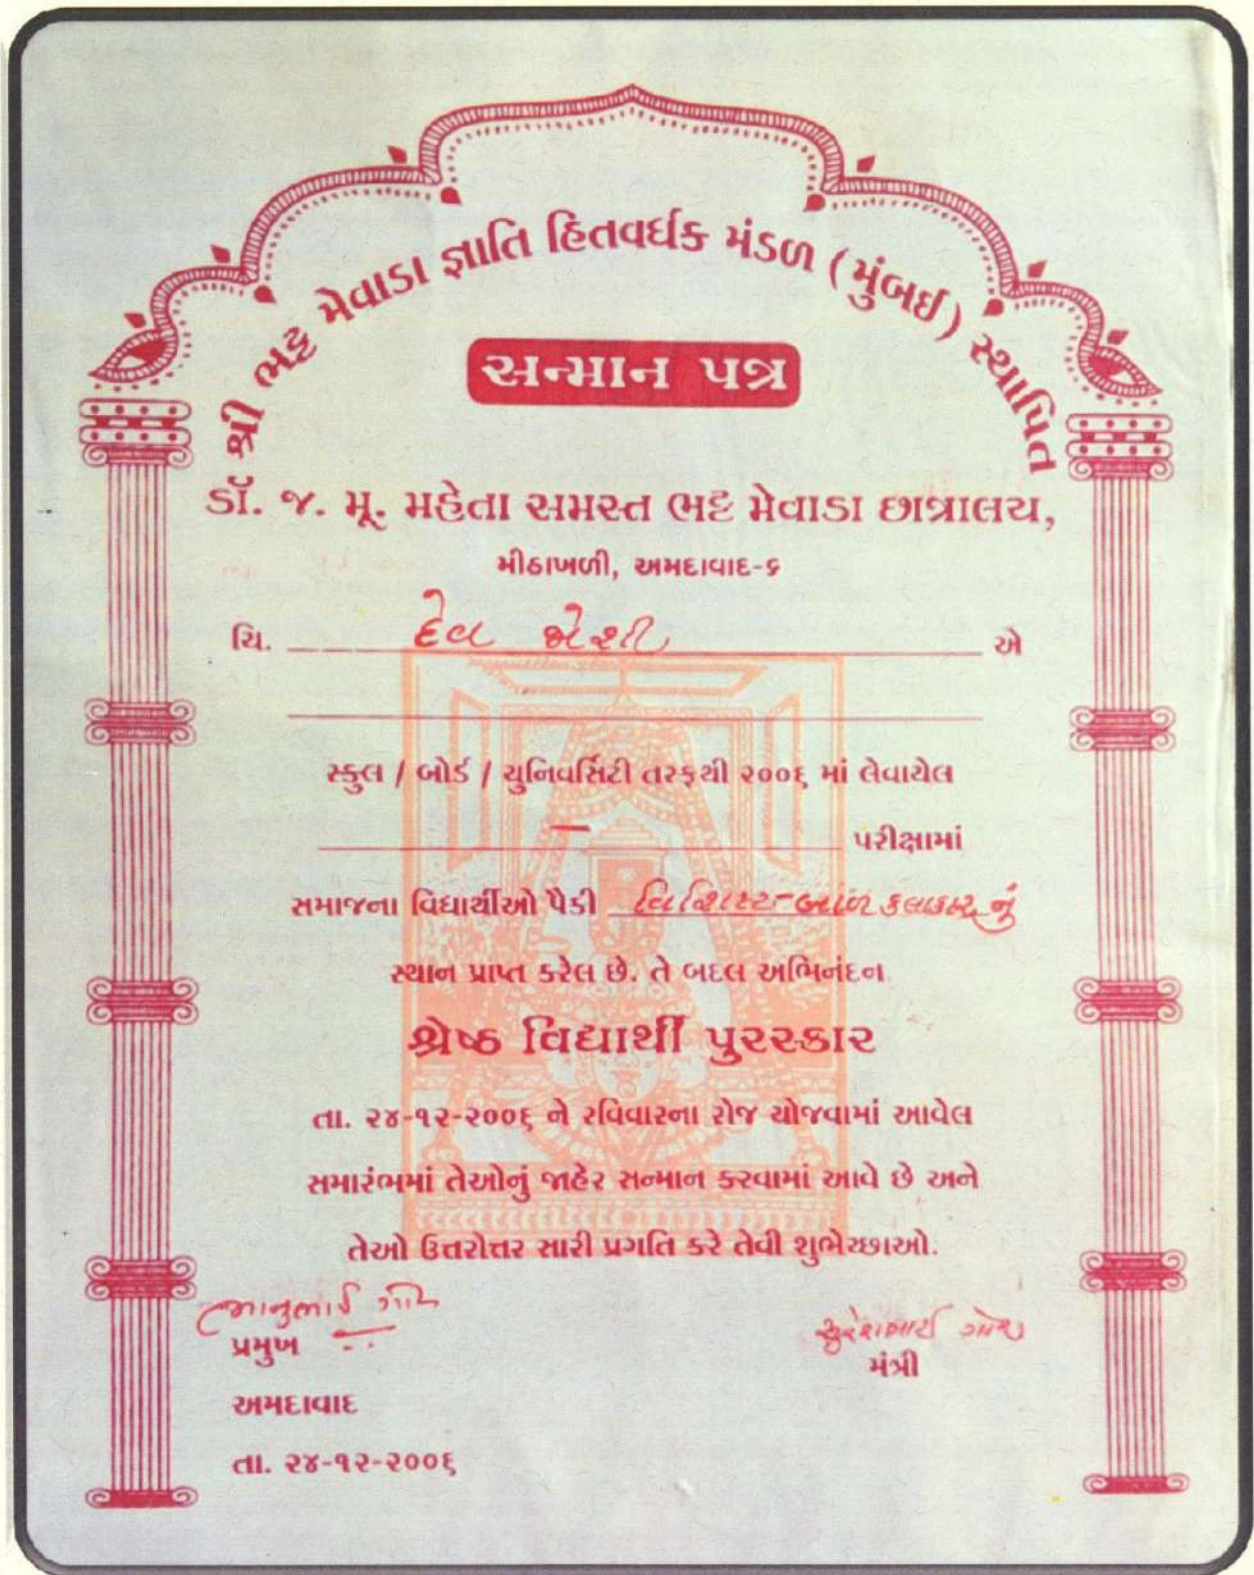 શ્રી ભટ્ટ મેવાડા જ્ઞાતિ હિતવર્ધક મંડળ (મુંબઈ) સ્થાપિત
સન્માન પત્ર
ડૉ. જ. મૂ. મહેતા સમસ્ત ભટ્ટ મેવાડા છાત્રાલય,
મીઠાખળી, અમદાવાદ-૬
ચિ. દેવ જોશી એ
સ્કુલ / બોર્ડ / યુનિવર્સિટી તરફથી ૨૦૦૬ માં લેવાયેલ
— પરીક્ષામાં
સમાજના વિદ્યાર્થીઓ પૈકી વિશિષ્ટ-બાળ કલાકાર નું
સ્થાન પ્રાપ્ત કરેલ છે. તે બદલ અભિનંદન
શ્રેષ્ઠ વિદ્યાર્થી પુરસ્કાર
તા. ૨૪-૧૨-૨૦૦૬ ને રવિવારના રોજ યોજવામાં આવેલ
સમારંભમાં તેઓનું જાહેર સન્માન કરવામાં આવે છે અને
તેઓ ઉત્તરોત્તર સારી પ્રગતિ કરે તેવી શુભેચ્છાઓ.
સુરેશભાઈ
પ્રમુખ
મંત્રી
અમદાવાદ
તા. ૨૪-૧૨-૨૦૦૬